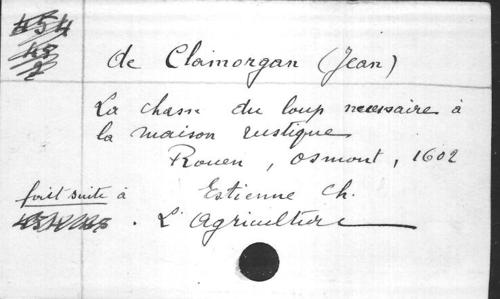 de Clamorgan (Jean)
La chasse du loup necessaire à
la maison rustique
Rouen, Osmont, 1602
fait suite à Estienne Ch.
L'Agriculture